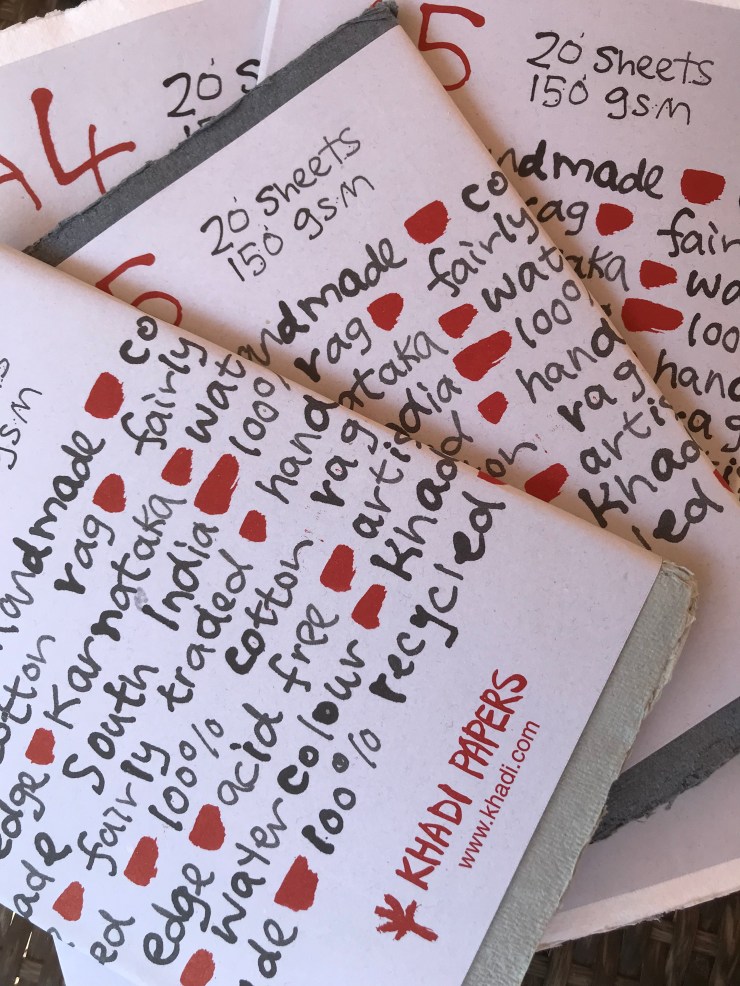 A4
20 s
5
20 sheets
150 gsm
ndmade
rag fair
aka wa
100
hand
rag
5
20 sheets
150 gsm
ndmade co
rag fairly
ataka wat
dia 100
hand
on rag
arti
Khad
led
gsm
handmade co
cotton rag fairly
edge Karnataka wat
ade South India 100%
fairly traded hand
ed 100% cotton rag
edge acid free arti
water colour Khad
de 100% recycled
KHADI PAPERS
www.khadi.com